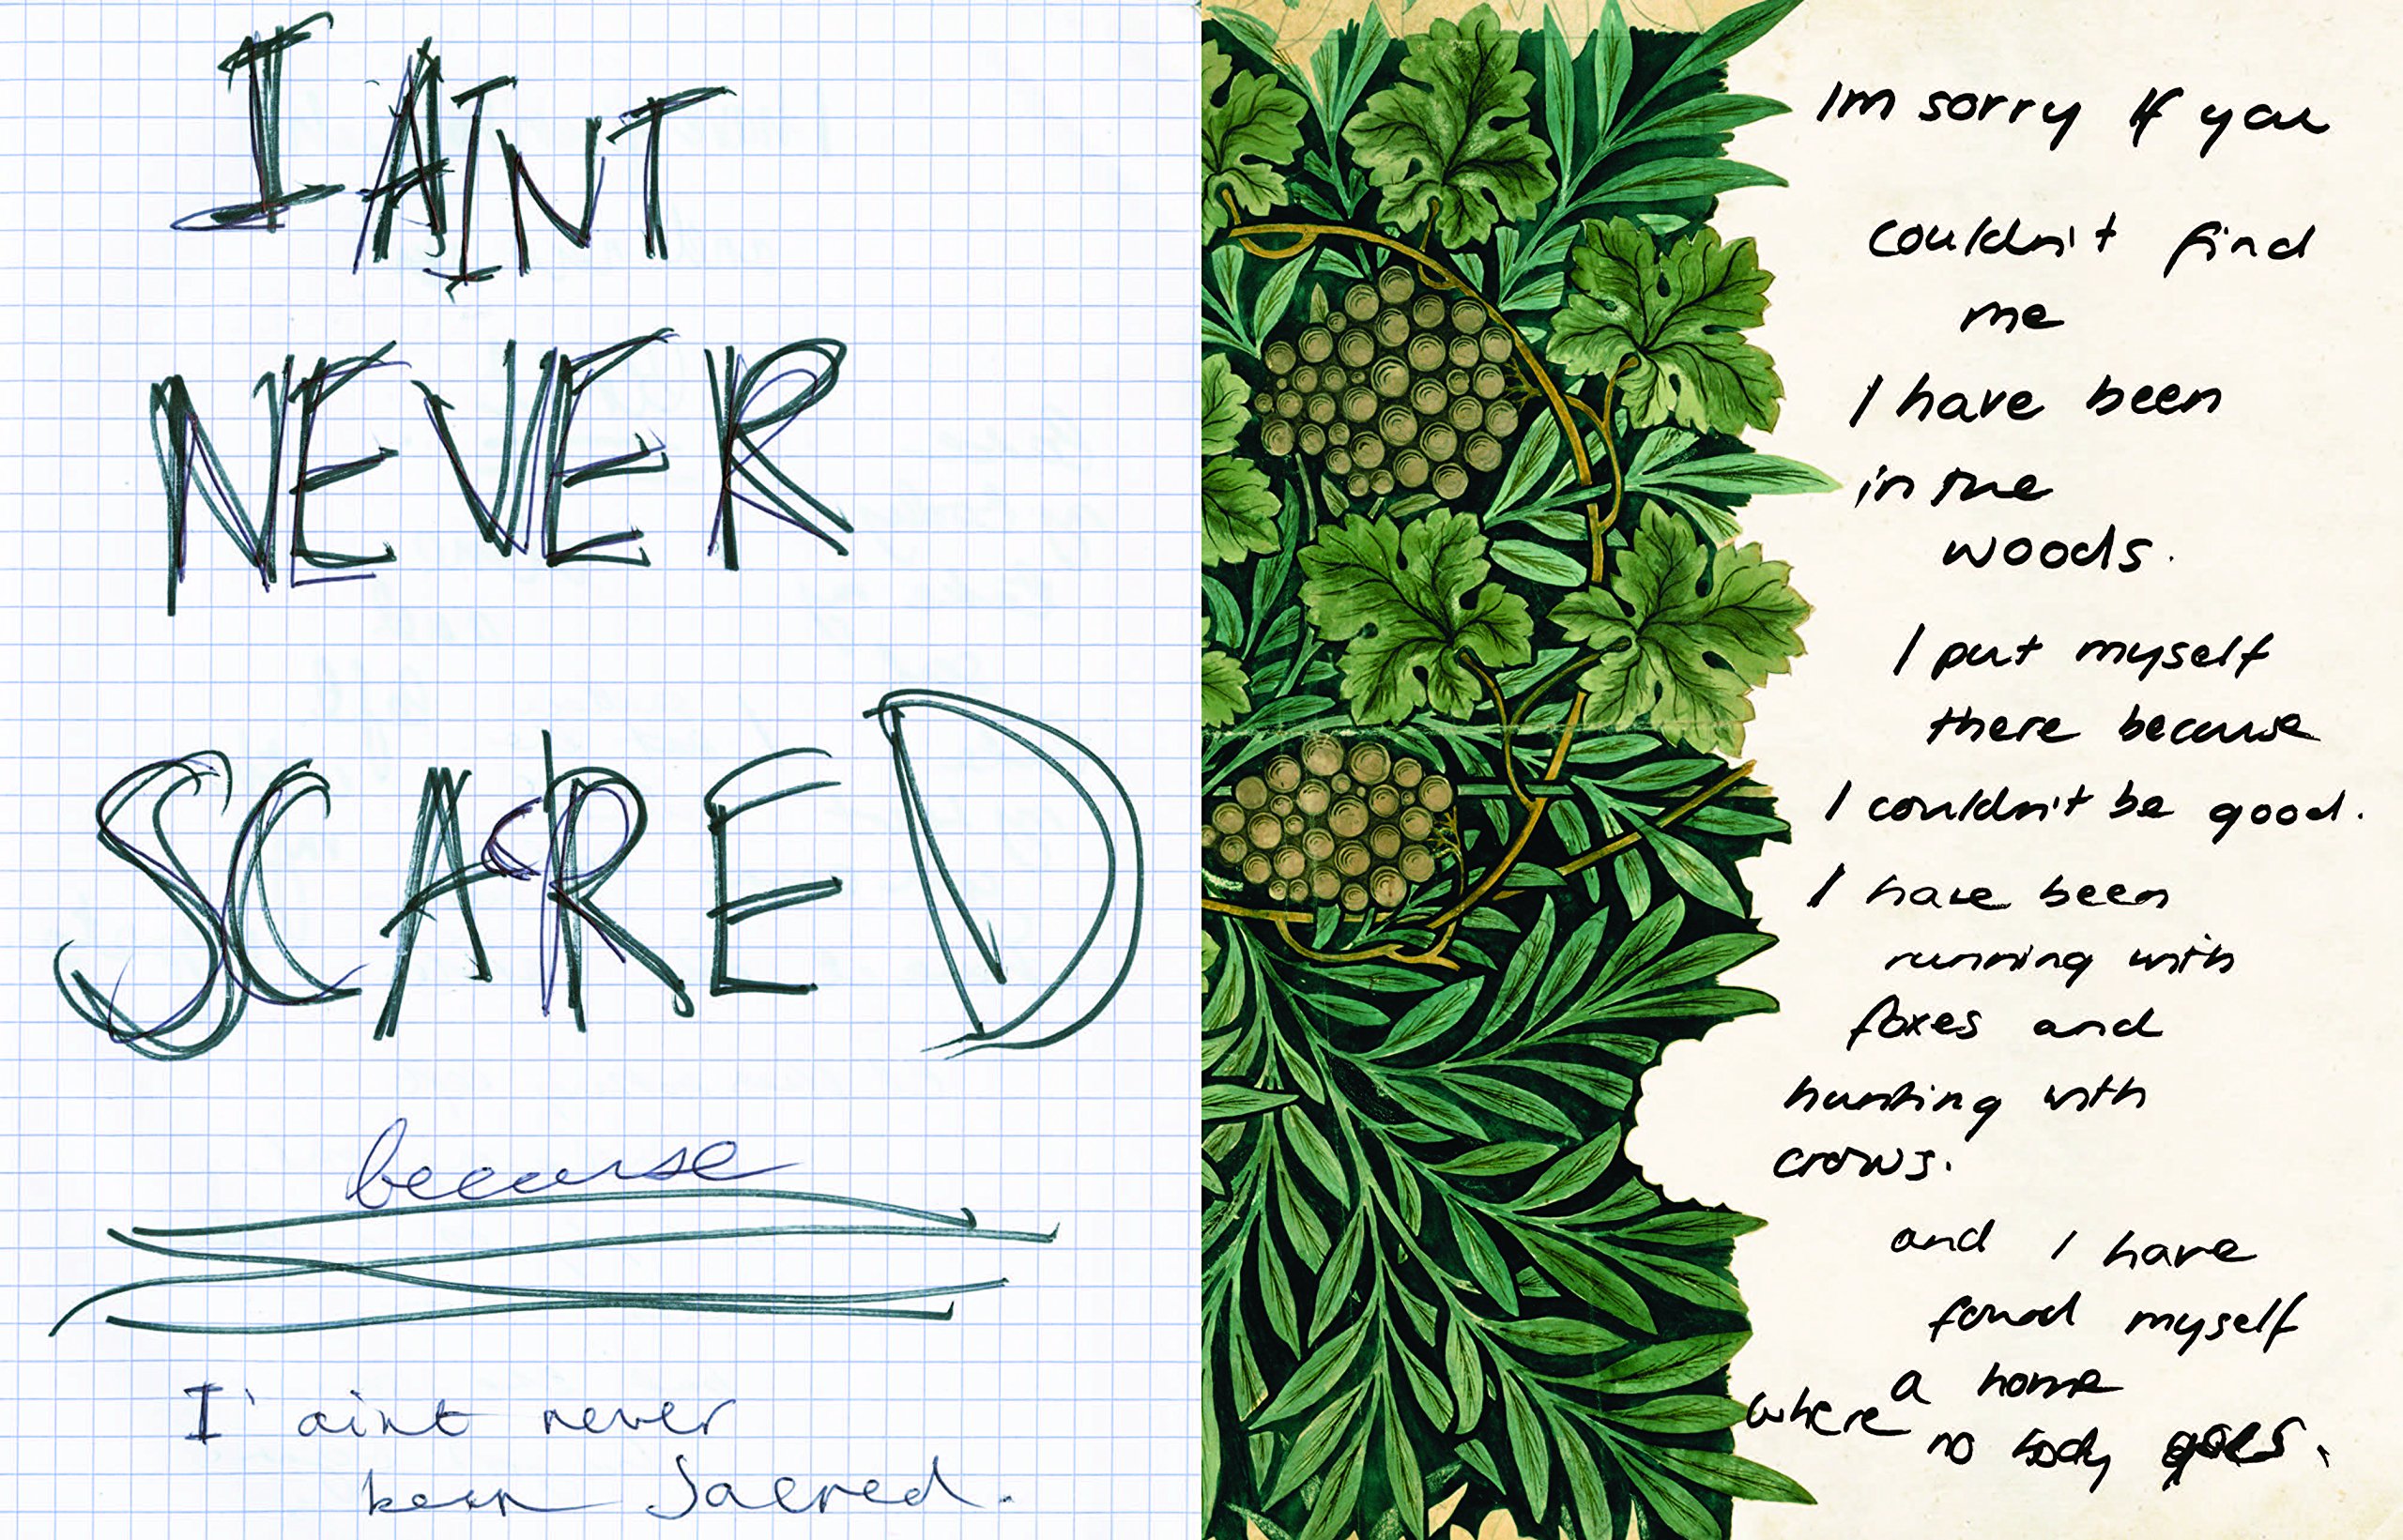 I AINT
NEVER
SCARED
because
I' aint never
been Sacred.
Im sorry If you
couldn't find
me
I have been
in the
woods.
I put myself
there because
I couldn't be good.
I have been
running with
foxes and
hunting with
crows.
and I have
found myself
a home
where
no body goes.